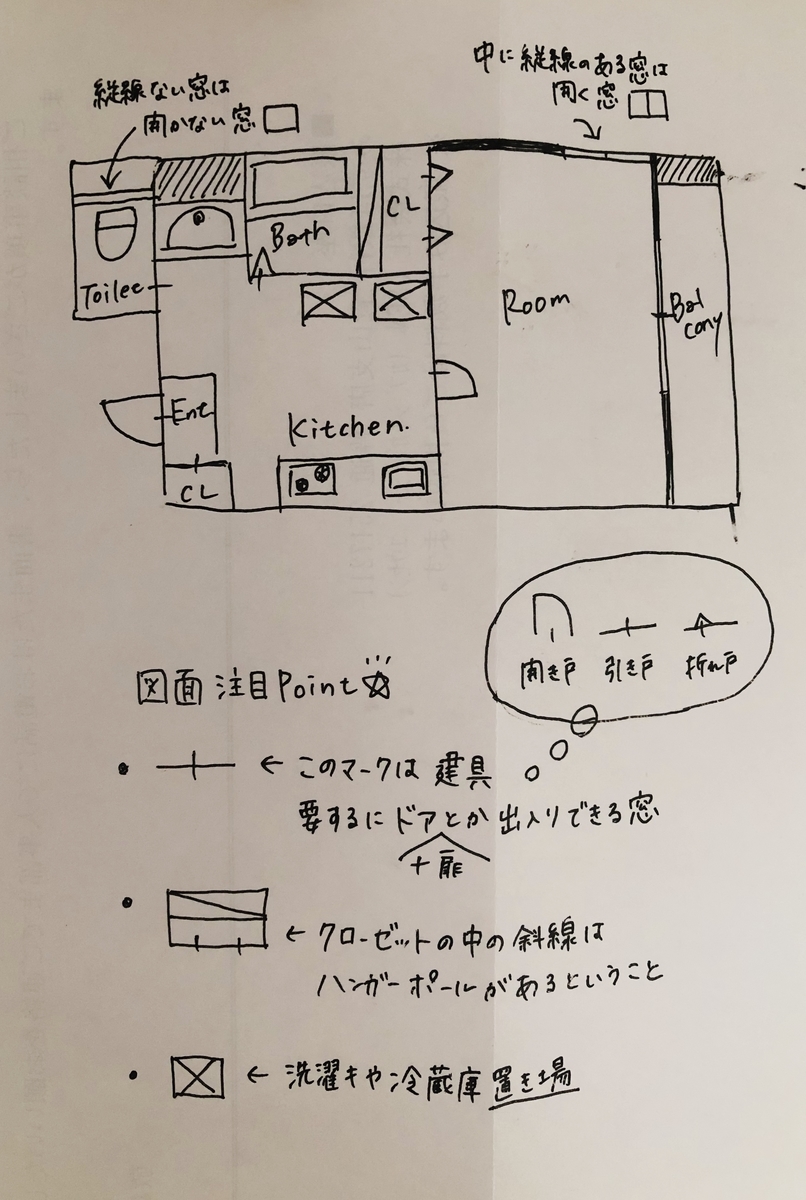 縦線ない窓は
開かない窓
中に縦線のある窓は
開く窓
CL
Bath
Toilet
Room
Bal
cony
Ent
Kitchen.
CL
開き戸 引き戸 折れ戸
図面 注目Point
← このマークは 建具
要するに ドアとか 出入りできる窓
+扉
← クローゼットの中の 斜線は
ハンガーポールがあるということ
← 洗濯キや冷蔵庫 置き場